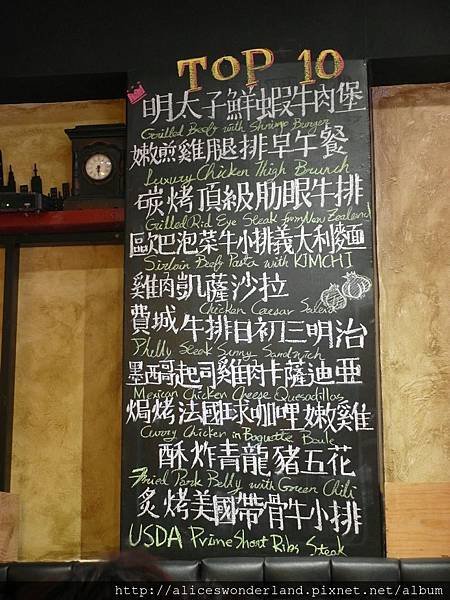 TOP 10
明太子鮮蝦牛肉堡
Grilled Beef with Shrimp Burger
嫩煎雞腿排早午餐
Luxury Chicken Thigh Brunch
碳烤頂級肋眼牛排
Grilled Rid Eye Steak from New Zealand
歐巴泡菜牛小排義大利麵
Sirloin Beef Pasta with KIMCHI
雞肉凱薩沙拉
Chicken Caesar Salad
費城牛排日初三明治
Philly Steak Sunny Sandwich
墨西哥起司雞肉卡薩迪亞
Mexican Chicken Cheese Quesadillas
焗烤法國球咖哩嫩雞
Curry Chicken in Baguette Boule
酥炸青龍豬五花
Fried Pork Belly with Green Chili
炙烤美國帶骨牛小排
USDA Prime Short Ribs Steak
http://aliceswonderland.pixnet.net/album